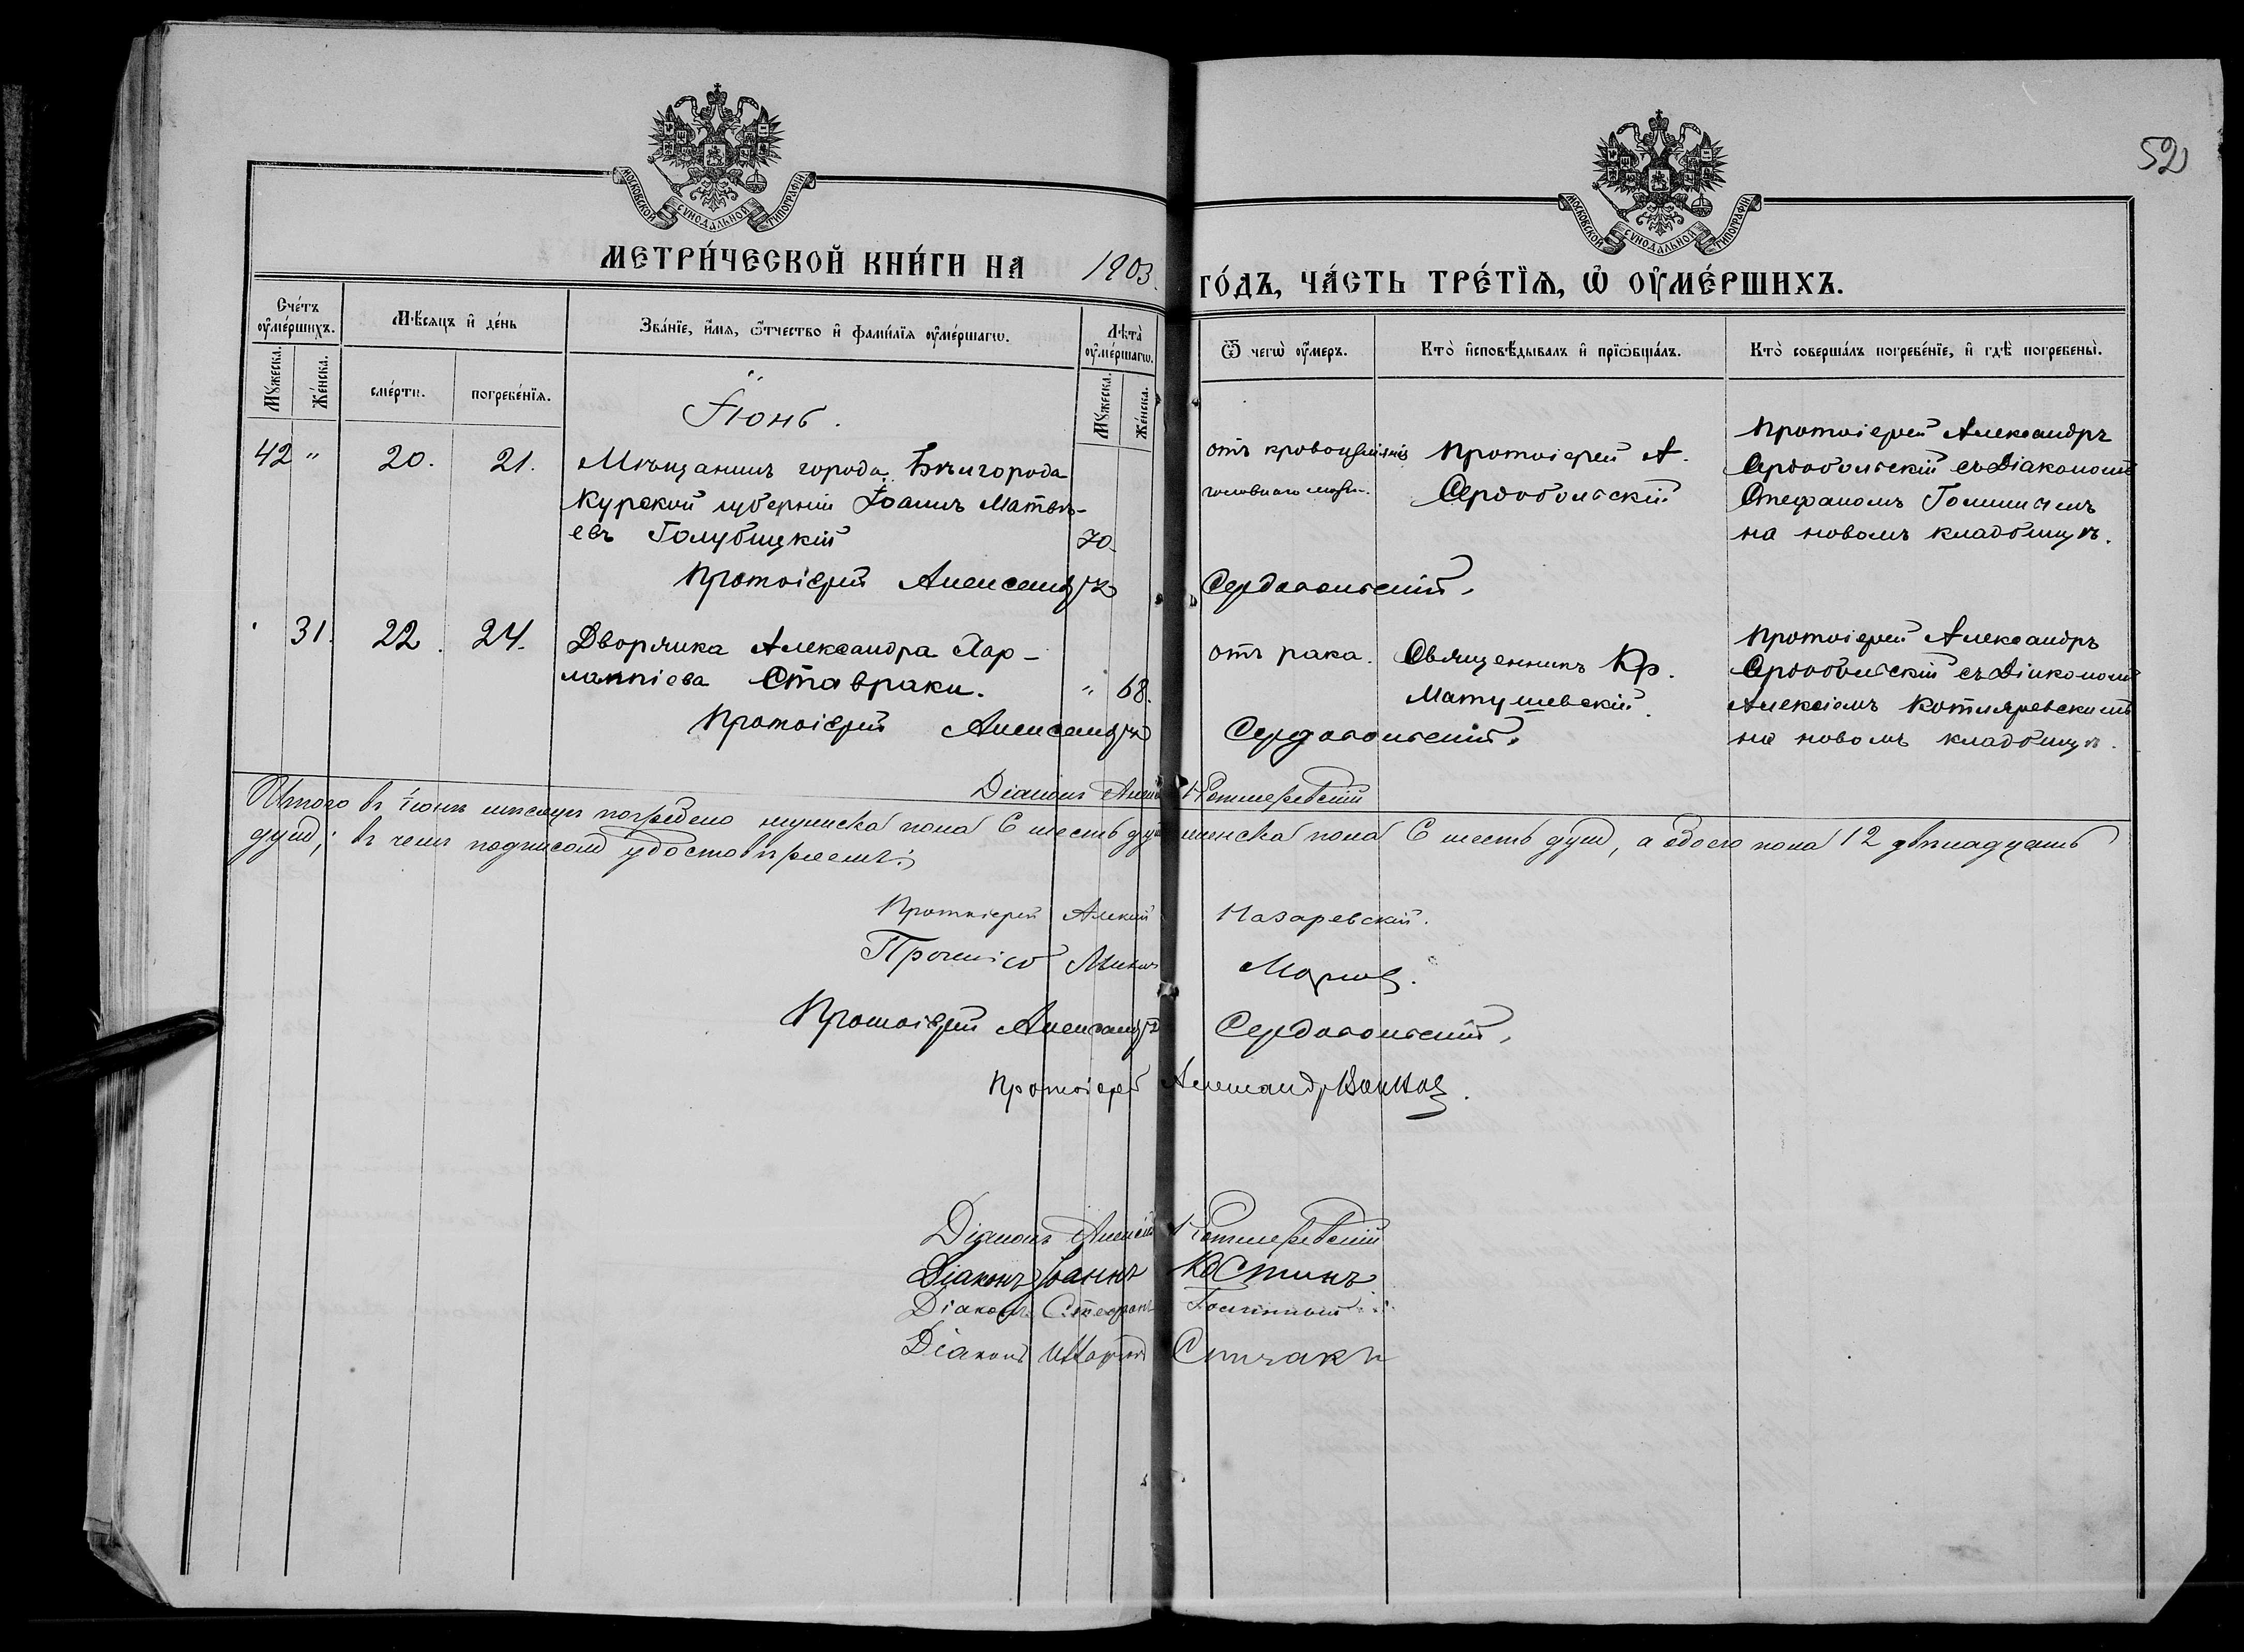 52
МОСКОВСКОЙ СУНОДАЛЬНОЙ ТИПОГРАФІИ
МОСКОВСКОЙ СУНОДАЛЬНОЙ ТИПОГРАФІИ
МЕТРИ́ЧЕСКОЙ КНИ́ГИ НА 1903. ГО́ДЪ, ЧА́СТЬ ТРЕ́ТІѦ, Ѽ ОУ҆МЕ́РШИХЪ.
Сче́тъ оу҆ме́ршихъ.
Мꙋ́жеска.
Же́нска.
Мѣ́сѧцъ и҆ де́нь
сме́рти.
погребе́нїѧ.
Зва́нїе, и҆́мѧ, ѻ҆́тчество и҆ фами́лїѧ оу҆ме́ршагѡ.
Лѣ́та оу҆ме́ршагѡ.
Мꙋ́жеска.
Же́нска.
Ѿ чегѡ̀ оу҆́меръ.
Кто̀ и҆сповѣ́дывалъ и҆ прїѡбща́лъ.
Кто̀ соверша́лъ погребе́нїе, и҆ гдѣ̀ погребены̀.
Іюнь.
42 " 20. 21.
Мѣщанинъ города Бѣлгорода
Курской губерніи Іоаннъ Матвѣ-
евъ Голубицкій 70.
отъ кровоизліянія
головного мозга.
Протоіерей А.
Сердобольскій
Протоіерей Александръ
Сердобольскій съ Діакономъ
Стефаномъ
на новомъ кладбищѣ.
Протоіерей Александръ Сердобольскій.
31. 22. 24.
Дворянка Александра Хар-
лампіева Ставраки. " 68.
отъ рака.
Священникъ Кр.
Матушевскій.
Протоіерей Александръ
Сердобольскій съ Діакономъ
Алексіемъ Котляревскимъ
на новомъ кладбищѣ.
Протоіерей Александръ Сердобольскій.
Діаконъ Алексій Котляревскій
Итого въ іюнѣ мѣсяцѣ погребено мужска пола 6 шесть душъ женска пола 6 шесть душъ, а обоего пола 12 двѣнадцать
душъ; въ чемъ подписомъ удостовѣряемъ:
Протоіерей Алексій Назаревскій.
Протоіерей
Протоіерей Александръ Сердобольскій.
Протоіерей Александръ
Діаконъ Алексій Котляревскій
Діаконъ Іоаннъ Костинъ
Діаконъ Стефанъ
Діаконъ